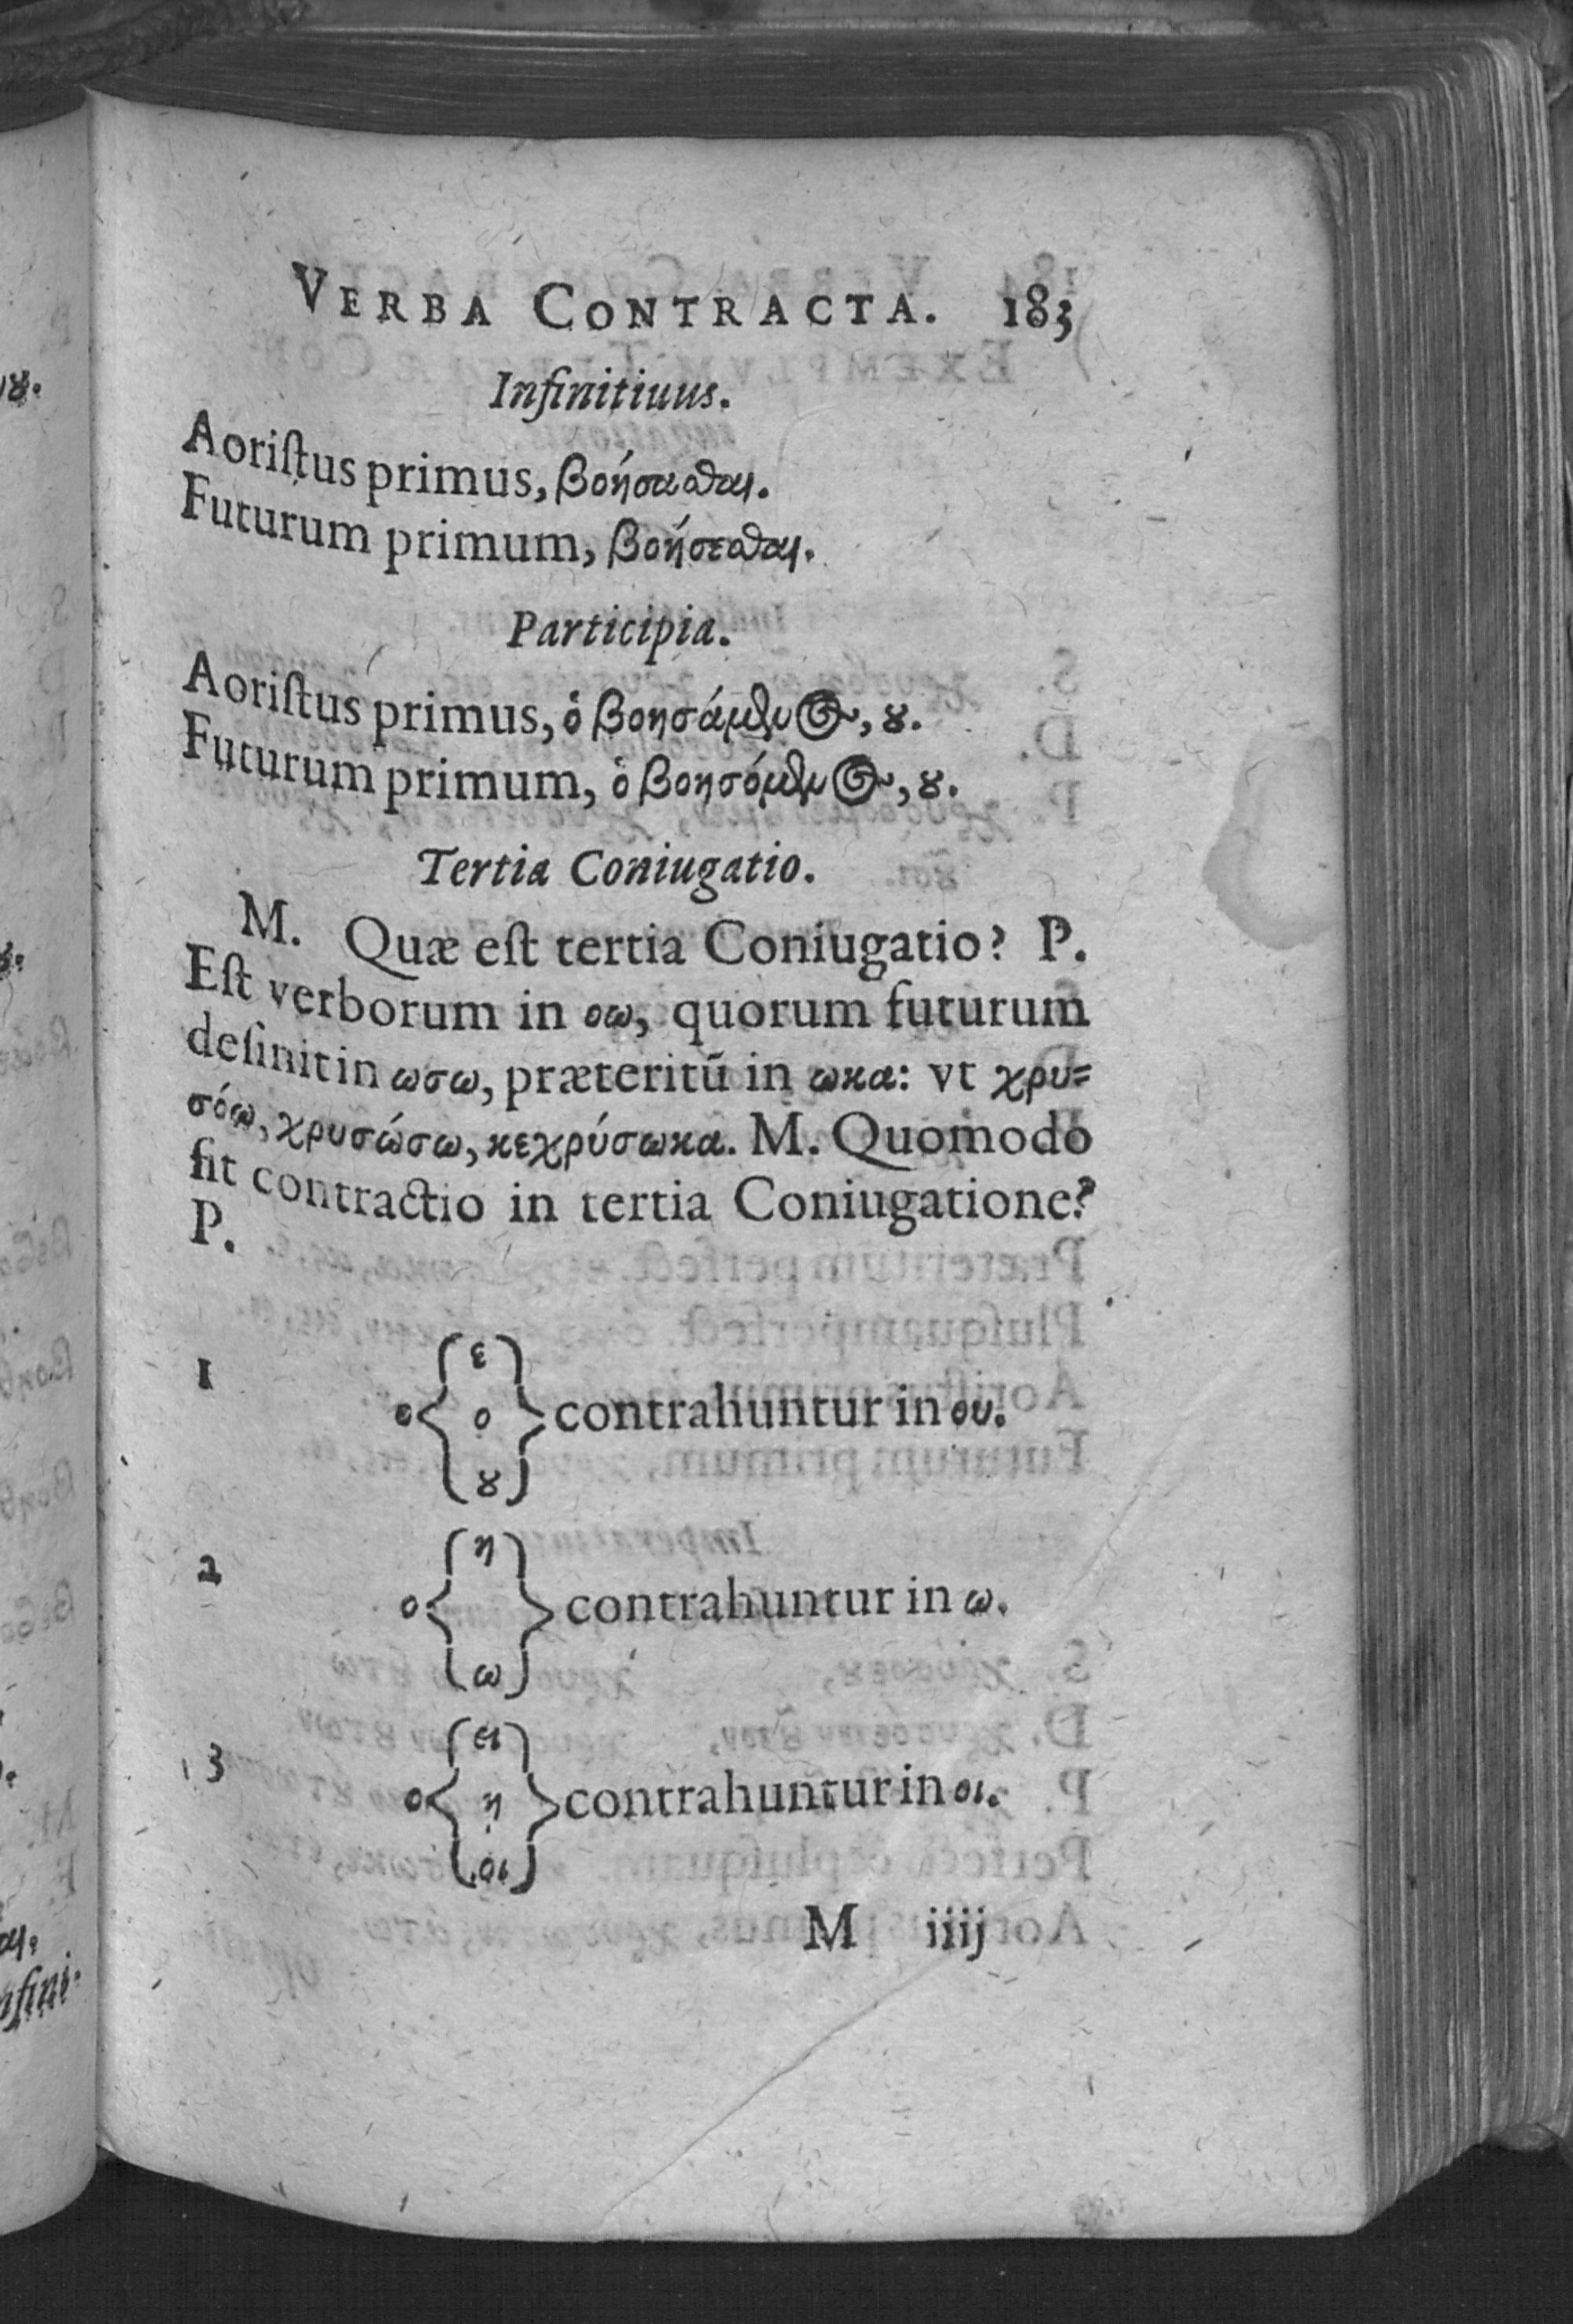 VERBA CONTRACTA. 183
Infinitiuus.
Aoriſtus primus, βοήσασθαι.
Futurum primum, βοήσεσθαι.
Participia.
Aoriſtus primus, ὁ βοησάμενος, ȣ.
Futurum primum, ὁ βοησόμενος, ȣ.
Tertia Coniugatio.
M. Quæ eſt tertia Coniugatio? P.
Eſt verborum in οω, quorum futurum
deſinit in ωσω, præteritū in ωκα: vt χρυ=
σόω, χρυσώσω, κεχρύσωκα. M. Quomodo
fit contractio in tertia Coniugatione?
P.
ε
1 ο ο contrahuntur in ου.
ȣ
η
2 ο contrahuntur in ω.
ω
ει
3 ο ῃ contrahuntur in οι.
οι
M iiij